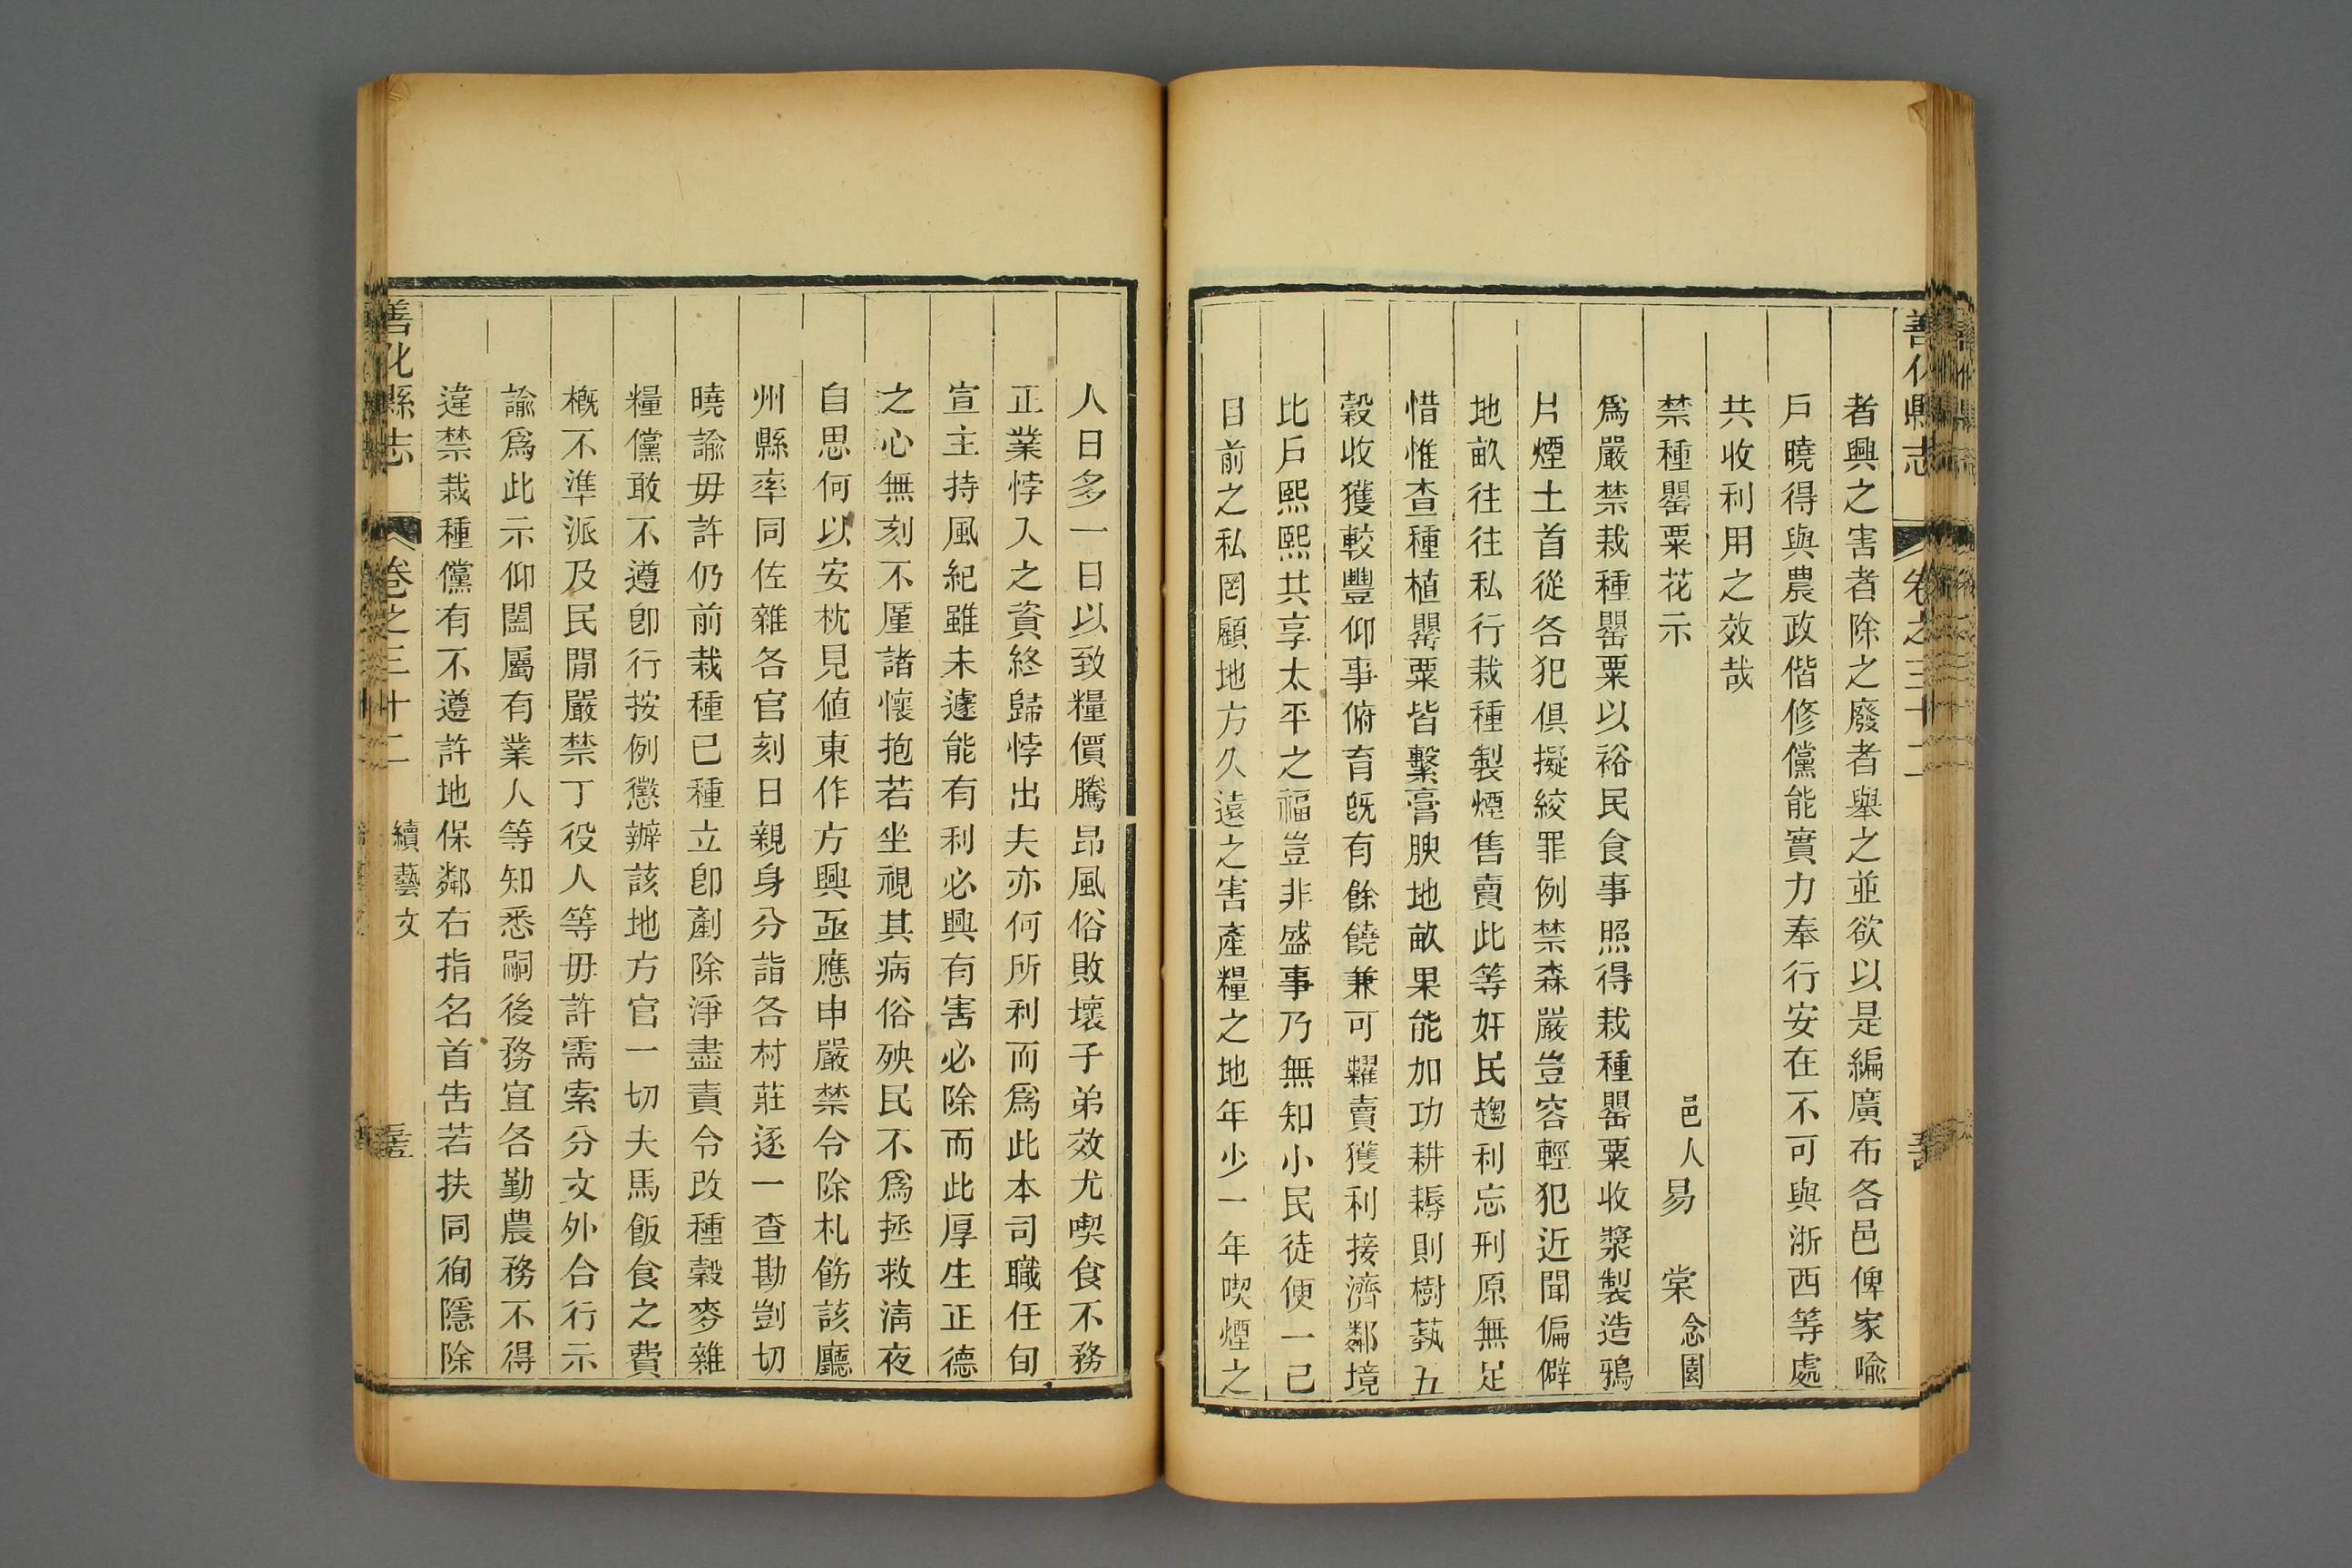 善化縣志 卷之三十二
者興之害者除之廢者舉之並欲以是編廣布各邑俾家喻
戶曉得與農政偕修儻能實力奉行安在不可與浙西等處
共收利用之效哉
禁種罌粟花示 邑人易 棠念園
爲嚴禁栽種罌粟以裕民食事照得栽種罌粟收漿製造鴉
片煙土首從各犯俱擬絞罪例禁森嚴豈容輕犯近聞偏僻
地畝往往私行栽種製煙售賣此等奸民趨利忘刑原無足
惜惟查種植罌粟皆繫膏腴地畝果能加功耕耨則樹蓺五
穀收獲較豐仰事俯育旣有餘饒兼可糶賣獲利接濟鄰境
比戶熙熙共享太平之福豈非盛事乃無知小民徒便一己
目前之私罔顧地方久遠之害產糧之地年少一年喫煙之
人日多一日以致糧價騰昂風俗敗壞子弟效尤喫食不務
正業悖入之資終歸悖出夫亦何所利而爲此本司職任旬
宣主持風紀雖未遽能有利必興有害必除而此厚生正德
之心無刻不厪諸懷抱若坐視其病俗殃民不爲拯救淸夜
自思何以安枕見値東作方興亟應申嚴禁令除札飭該廳
州縣率同佐雜各官刻日親身分詣各村莊逐一查勘剴切
曉諭毋許仍前栽種已種立卽剷除淨盡責令改種穀麥雜
糧儻敢不遵卽行按例懲辦該地方官一切夫馬飯食之費
槪不準派及民閒嚴禁丁役人等毋許需索分文外合行示
諭爲此示仰闔屬有業人等知悉嗣後務宜各勤農務不得
違禁栽種儻有不遵許地保鄰右指名首告若扶同徇隱除
善化縣志 卷之三十二 續藝文